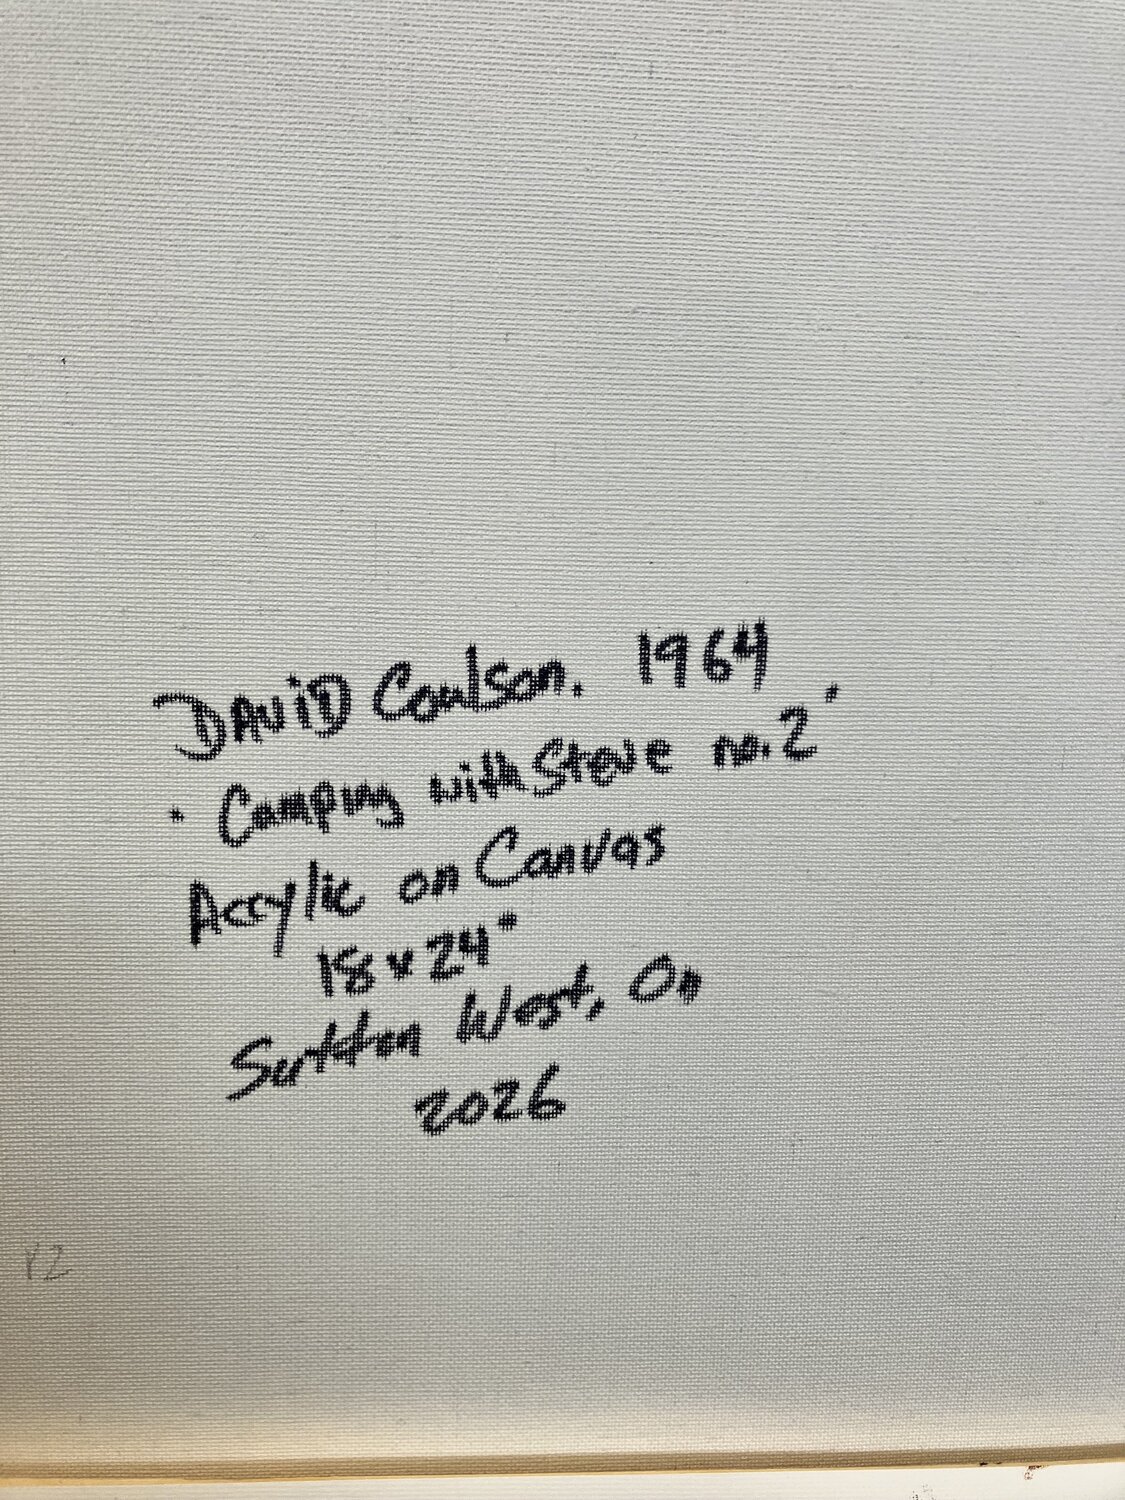 DAViD Coulson. 1964
"Camping with Steve no.2"
Acrylic on Canvas
18 x 24"
Sutton West, On
2026